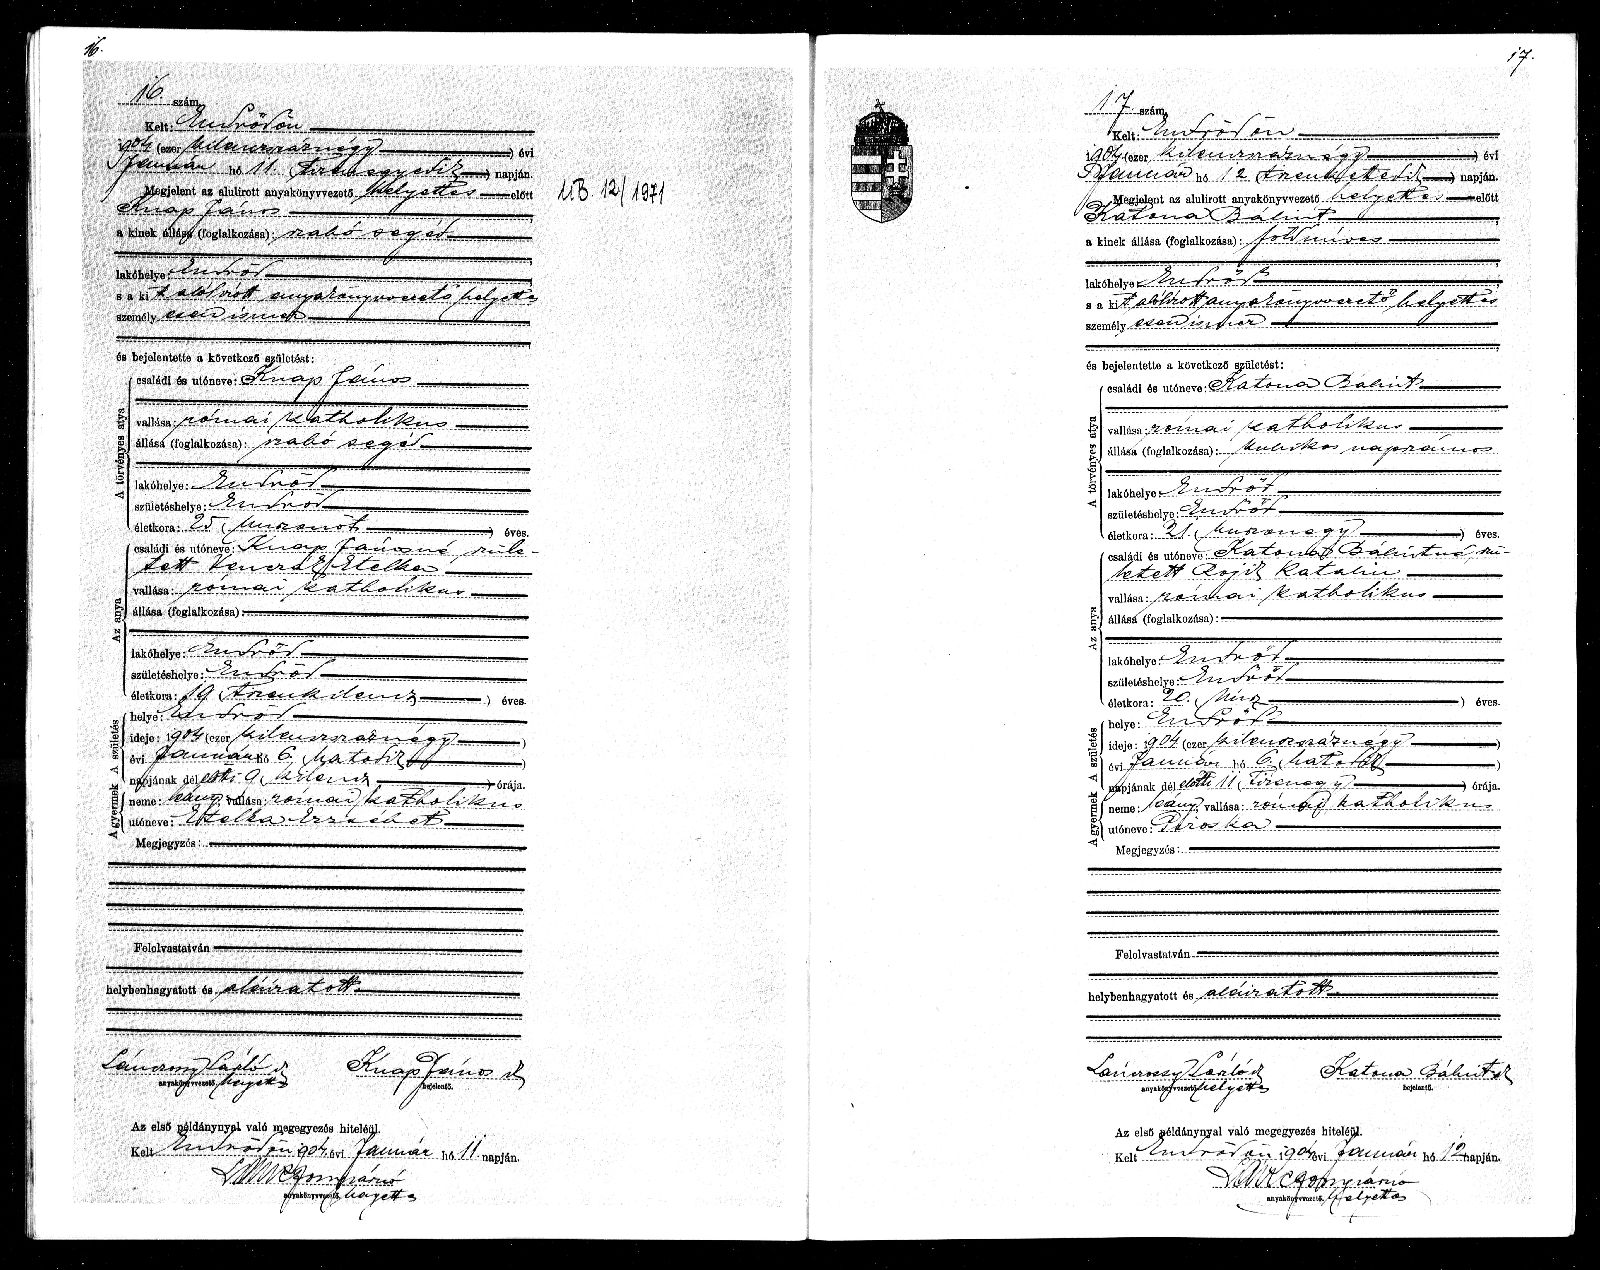 16.
16. szám.
Kelt: Endrődön
1904 (ezer kilencszáznégy) évi
Január hó 11. (tizenegyedik) napján.
Megjelent az alulirott anyakönyvvezető helyettes előtt
Knap János
a kinek állása (foglalkozása): szabó segéd
lakóhelye: Endrőd
s a kit alulírott anyakönyvvezető helyettes
személyesen ismer
és bejelentette a következő születést:
A törvényes atya
családi és utóneve: Knap János
vallása: római katholikus
állása (foglalkozása): szabó segéd
lakóhelye: Endrőd
születéshelye: Endrőd
életkora: 25 (huszonöt) éves.
Az anya
családi és utóneve: Knap Jánosné, szüle-
tett Etelka
vallása: római katholikus
állása (foglalkozása):
lakóhelye: Endrőd
születéshelye: Endrőd
életkora: 19 (tizenkilenc) éves.
A születés
helye: Endrőd
ideje: 1904 (ezer kilencszáznégy)
évi Január hó 6. (hatodik)
napjának dél előtti 9 (kilenc) órája.
A gyermek
neme: leány, vallása: római katholikus
utóneve: Etelka Erzsébet
Megjegyzés:
Felolvastatván
helybenhagyatott és aláiratott.
László
anyakönyvvezető helyettes
Knap János
bejelentő.
Az első példánynyal való megegyezés hiteléül.
Kelt Endrődön 1904 évi Január hó 11 napján.
anyakönyvvezető. helyettes
UB. 12/1971
17.
17. szám.
Kelt: Endrődön
1904 (ezer kilencszáznégy) évi
Január hó 12 (tizenkettedik) napján.
Megjelent az alulirott anyakönyvvezető helyettes előtt
Katona Bálint
a kinek állása (foglalkozása): földmíves
lakóhelye: Endrőd
s a kit alulírott anyakönyvvezető helyettes
személyesen ismer
és bejelentette a következő születést:
A törvényes atya
családi és utóneve: Katona Bálint
vallása: római katholikus
állása (foglalkozása): kubikos napszámos
lakóhelye: Endrőd
születéshelye: Endrőd
életkora: 24 (huszonnégy) éves.
Az anya
családi és utóneve: Katona Bálintné, szü-
letett Rojik Katalin
vallása: római katholikus
állása (foglalkozása):
lakóhelye: Endrőd
születéshelye: Endrőd
életkora: 20. (húsz) éves.
A születés
helye: Endrőd
ideje: 1904 (ezer kilencszáznégy)
évi Január hó 6. (hatodik)
napjának dél előtti 11 (tizenegy) órája.
A gyermek
neme: leány, vallása: római katholikus
utóneve: Piroska
Megjegyzés:
Felolvastatván
helybenhagyatott és aláiratott.
László
anyakönyvvezető helyettes
Katona Bálint
bejelentő.
Az első példánynyal való megegyezés hiteléül.
Kelt Endrődön 1904 évi Január hó 12 napján.
anyakönyvvezető. helyettes